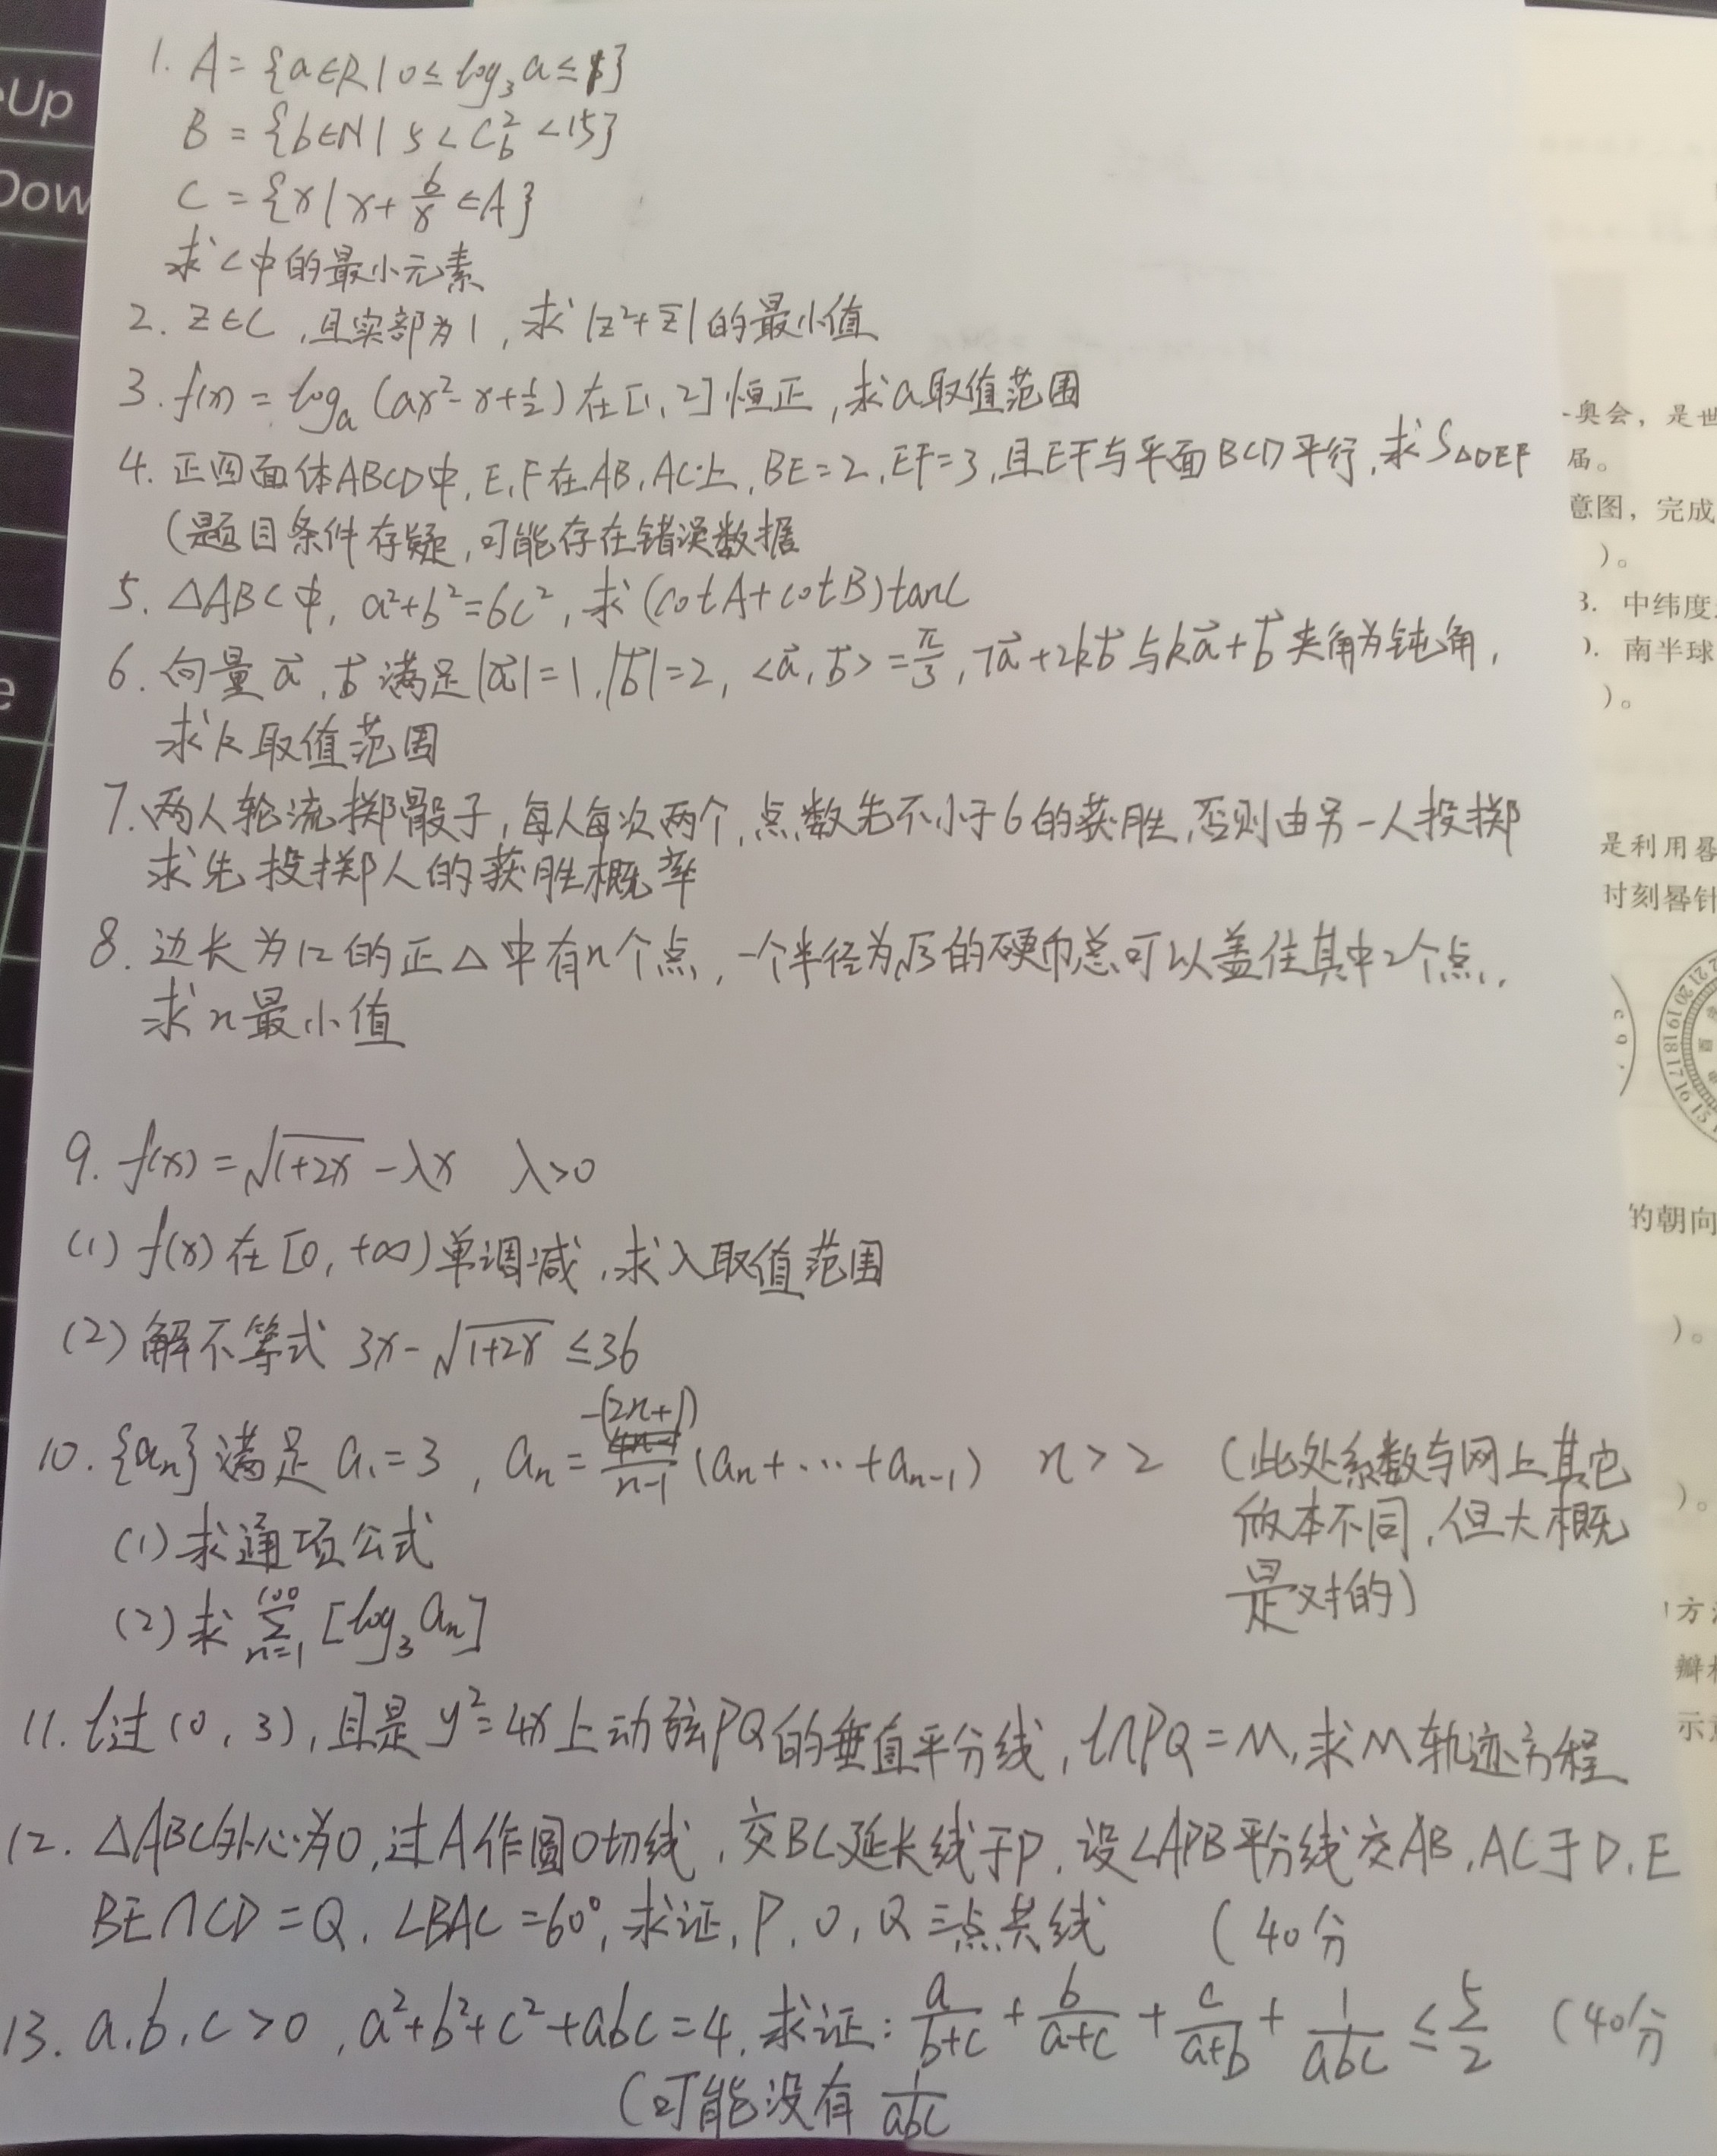 1. A = {a∈R | 0 ≤ log₃a ≤ 1}
B = {b∈N | 5 < C_b^2 < 15}
C = {x | x + b/x ∈ A}
求C中的最小元素
2. z∈C, 且实部为1, 求|z²+z̄|的最小值
3. f(x) = log_a(ax²-x+1/2)在[1,2]恒正, 求a取值范围
4. 正四面体ABCD中, E,F在AB,AC上, BE=2, EF=3, 且EF与平面BCD平行, 求S△DEF
(题目条件存疑, 可能存在错误数据
5. △ABC中, a²+b²=6c², 求(cotA+cotB)tanC
6. 向量a⃗, b⃗满足|a⃗|=1, |b⃗|=2, <a⃗, b⃗>=π/3, 7a⃗+2kb⃗与ka⃗+b⃗夹角为钝角,
求k取值范围
7. 两人轮流掷骰子, 每人每次两个, 点数先不小于6的获胜, 否则由另一人投掷
求先投掷人的获胜概率
8. 边长为12的正△中有n个点, 一个半径为√3的硬币总可以盖住其中2个点,
求n最小值
9. f(x) = √(1+2x) - λx λ>0
(1) f(x)在[0, +∞)单调减, 求λ取值范围
(2) 解不等式 3x-√(1+2x) ≤36
10. {aₙ}满足 a₁=3, aₙ = -(2n+1)/(n-1) (aₙ+⋯+aₙ₋₁) n>2 (此处系数与网上其它
版本不同, 但大概
是对的)
(1) 求通项公式
(2) 求 ∑_{n=1}^{100} [log₃aₙ]
11. l过(0, 3), 且是y²=4x上动弦PQ的垂直平分线, l∩PQ=M, 求M轨迹方程
12. △ABC外心为O, 过A作圆O切线, 交BC延长线于P, 设∠APB平分线交AB, AC于D, E
BE∩CD=Q, ∠BAC=60°, 求证, P, O, Q三点共线 (40分
13. a, b, c>0, a²+b²+c²+abc=4, 求证: a/(b+c) + b/(a+c) + c/(a+b) + 1/(abc) ≤ 5/2 (40分
(可能没有 1/(abc)
eUp
Dow
e
奥会, 是世
届。
意图, 完成
)。
3. 中纬度
南半球
)。
是利用晷
时刻晷针
的朝向
)。
)。
方
示意